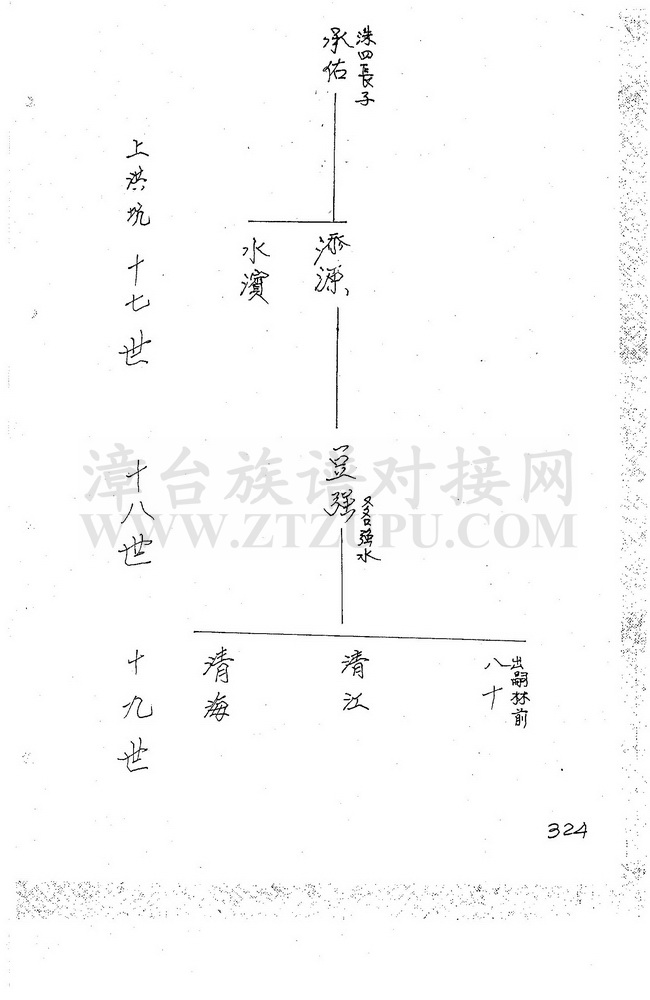 洙四長子
承佑
上洪坑 十七世
添源、
水濱
十八世
豆强
名強水
十九世
出嗣林前
八十
清江
清海
漳台族谱对接网
WWW.ZTZUPU.COM
324